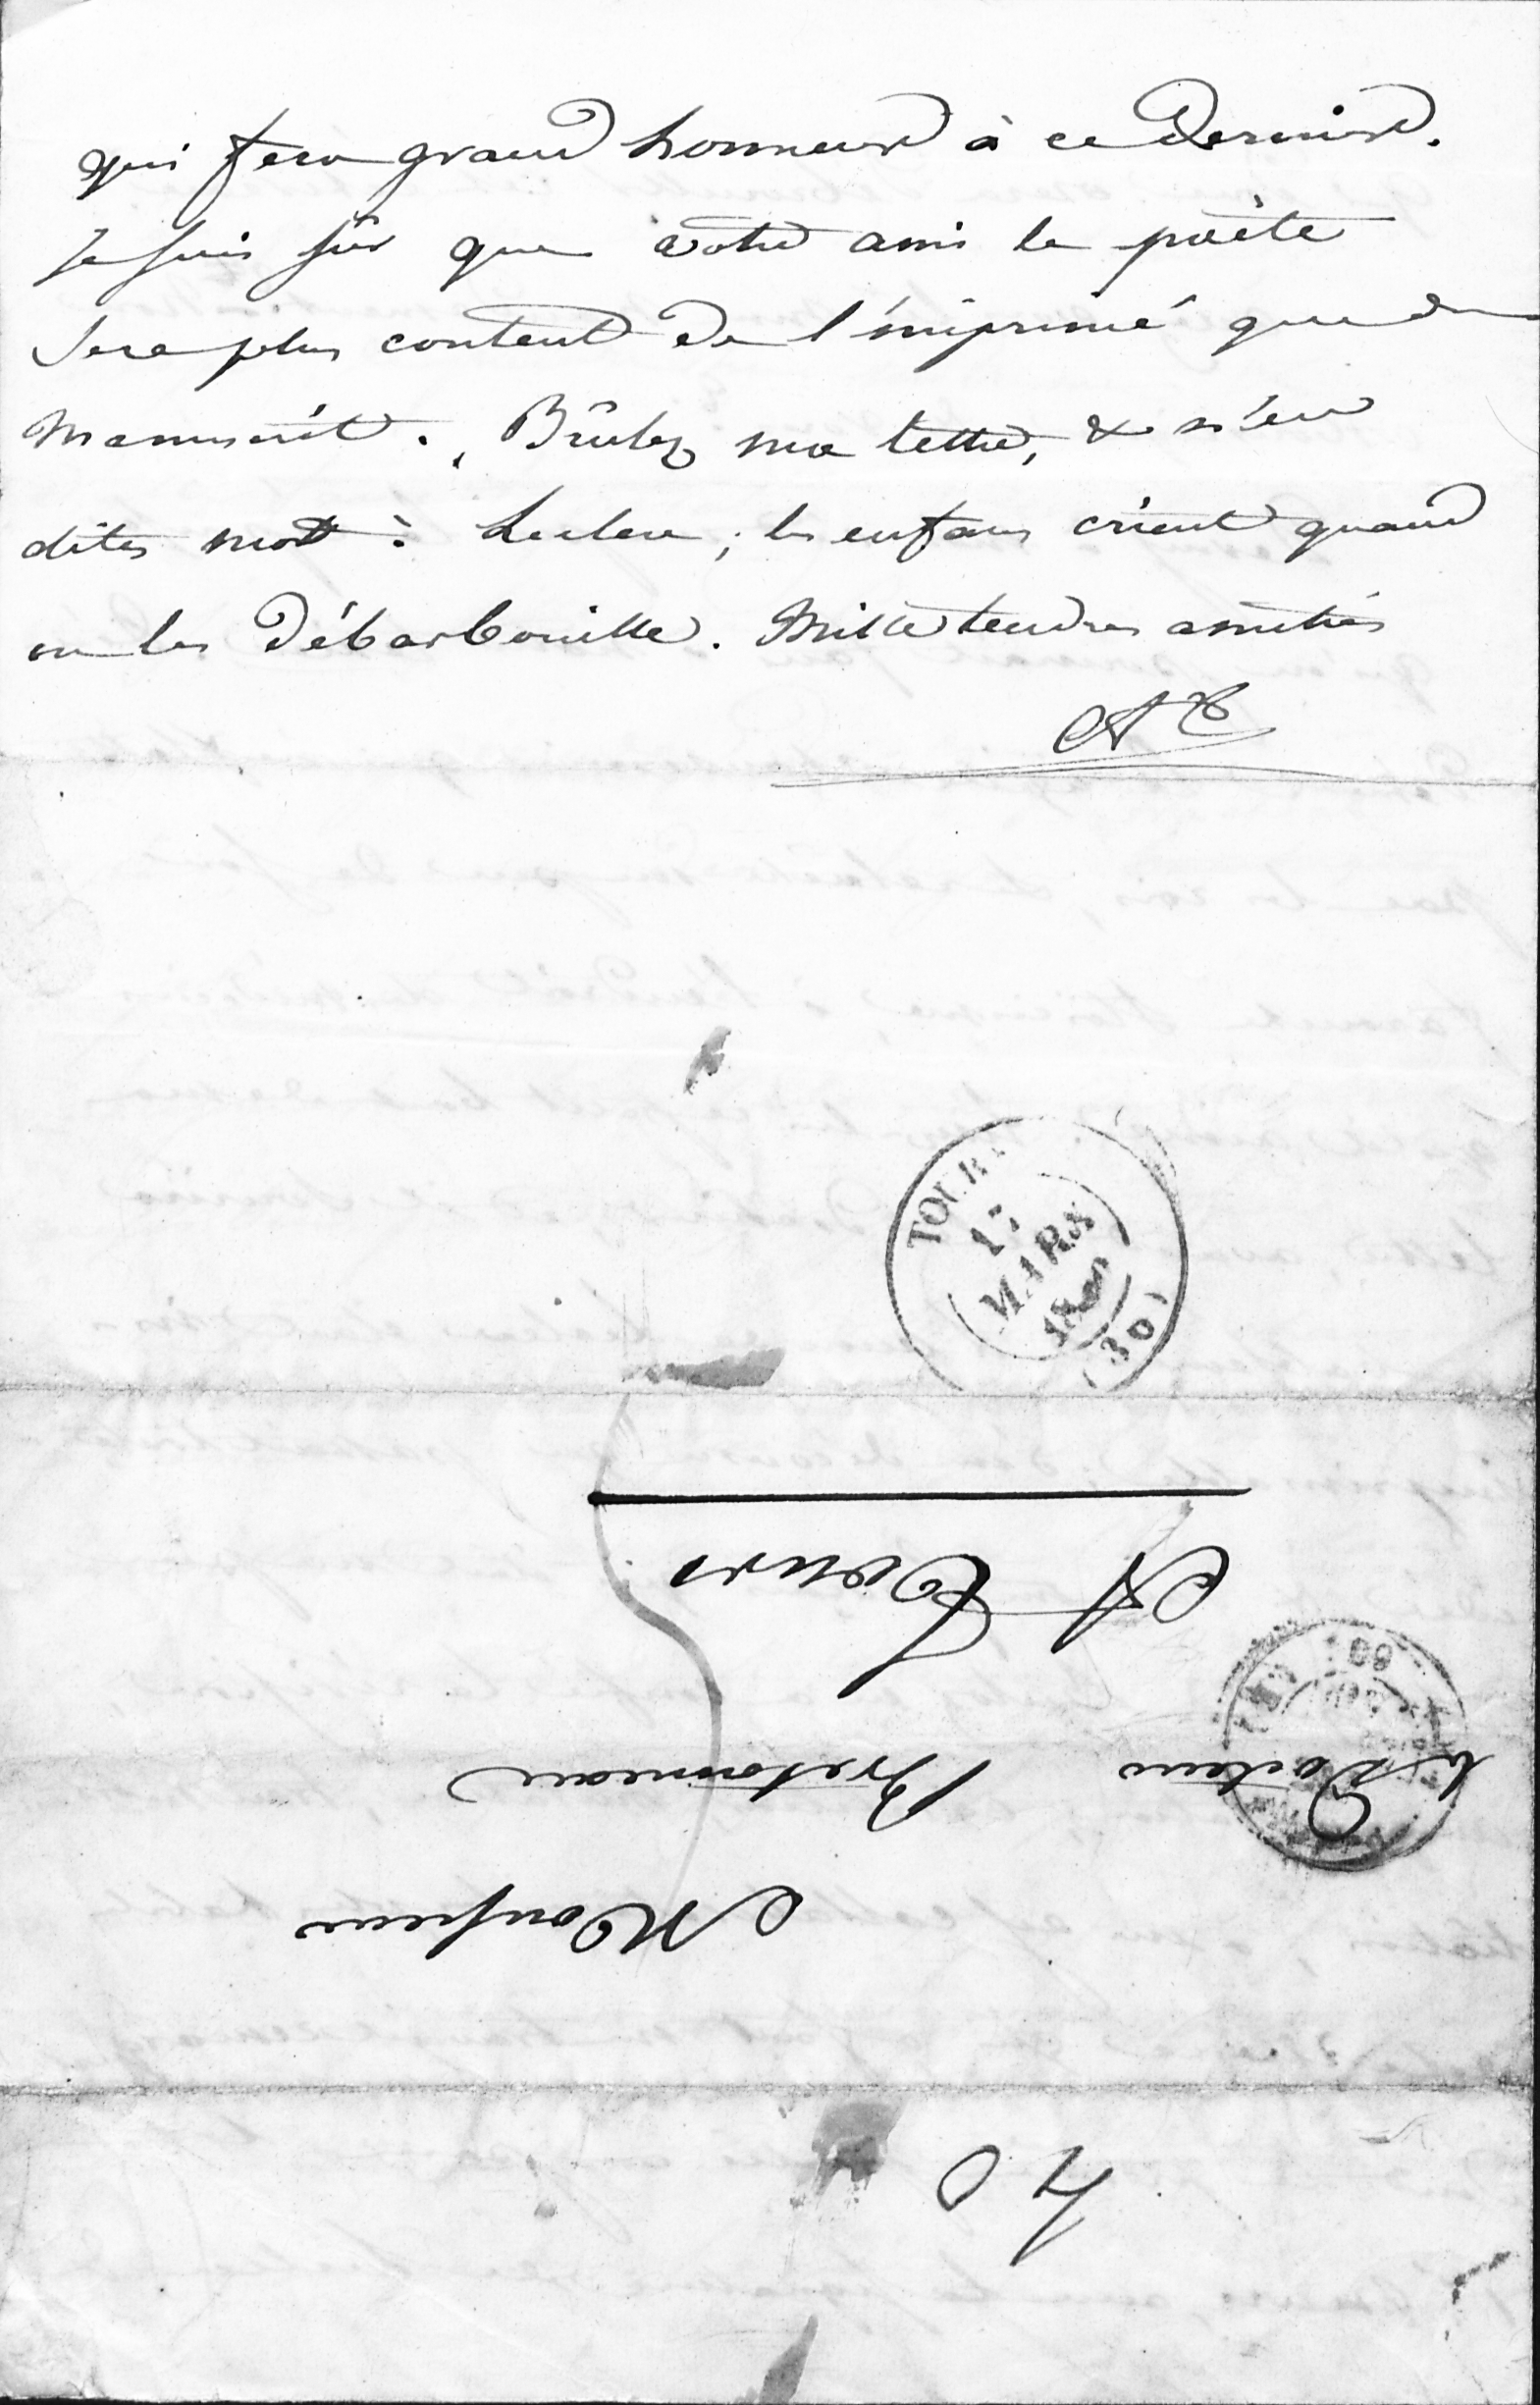 qui fera grand honneur à ce dernier.
Je suis sûr que votre ami le poète
sera plus content de l'imprimé que du
manuscrit. Brûlez ma lettre, & n'en
dites mot à Leclerc ; les enfans crient quand
on les débarbouille. Mille tendres amitiés
AT
TOURS
17
MARS
(36)
Monsieur
le Docteur Bretonneau
A Tours